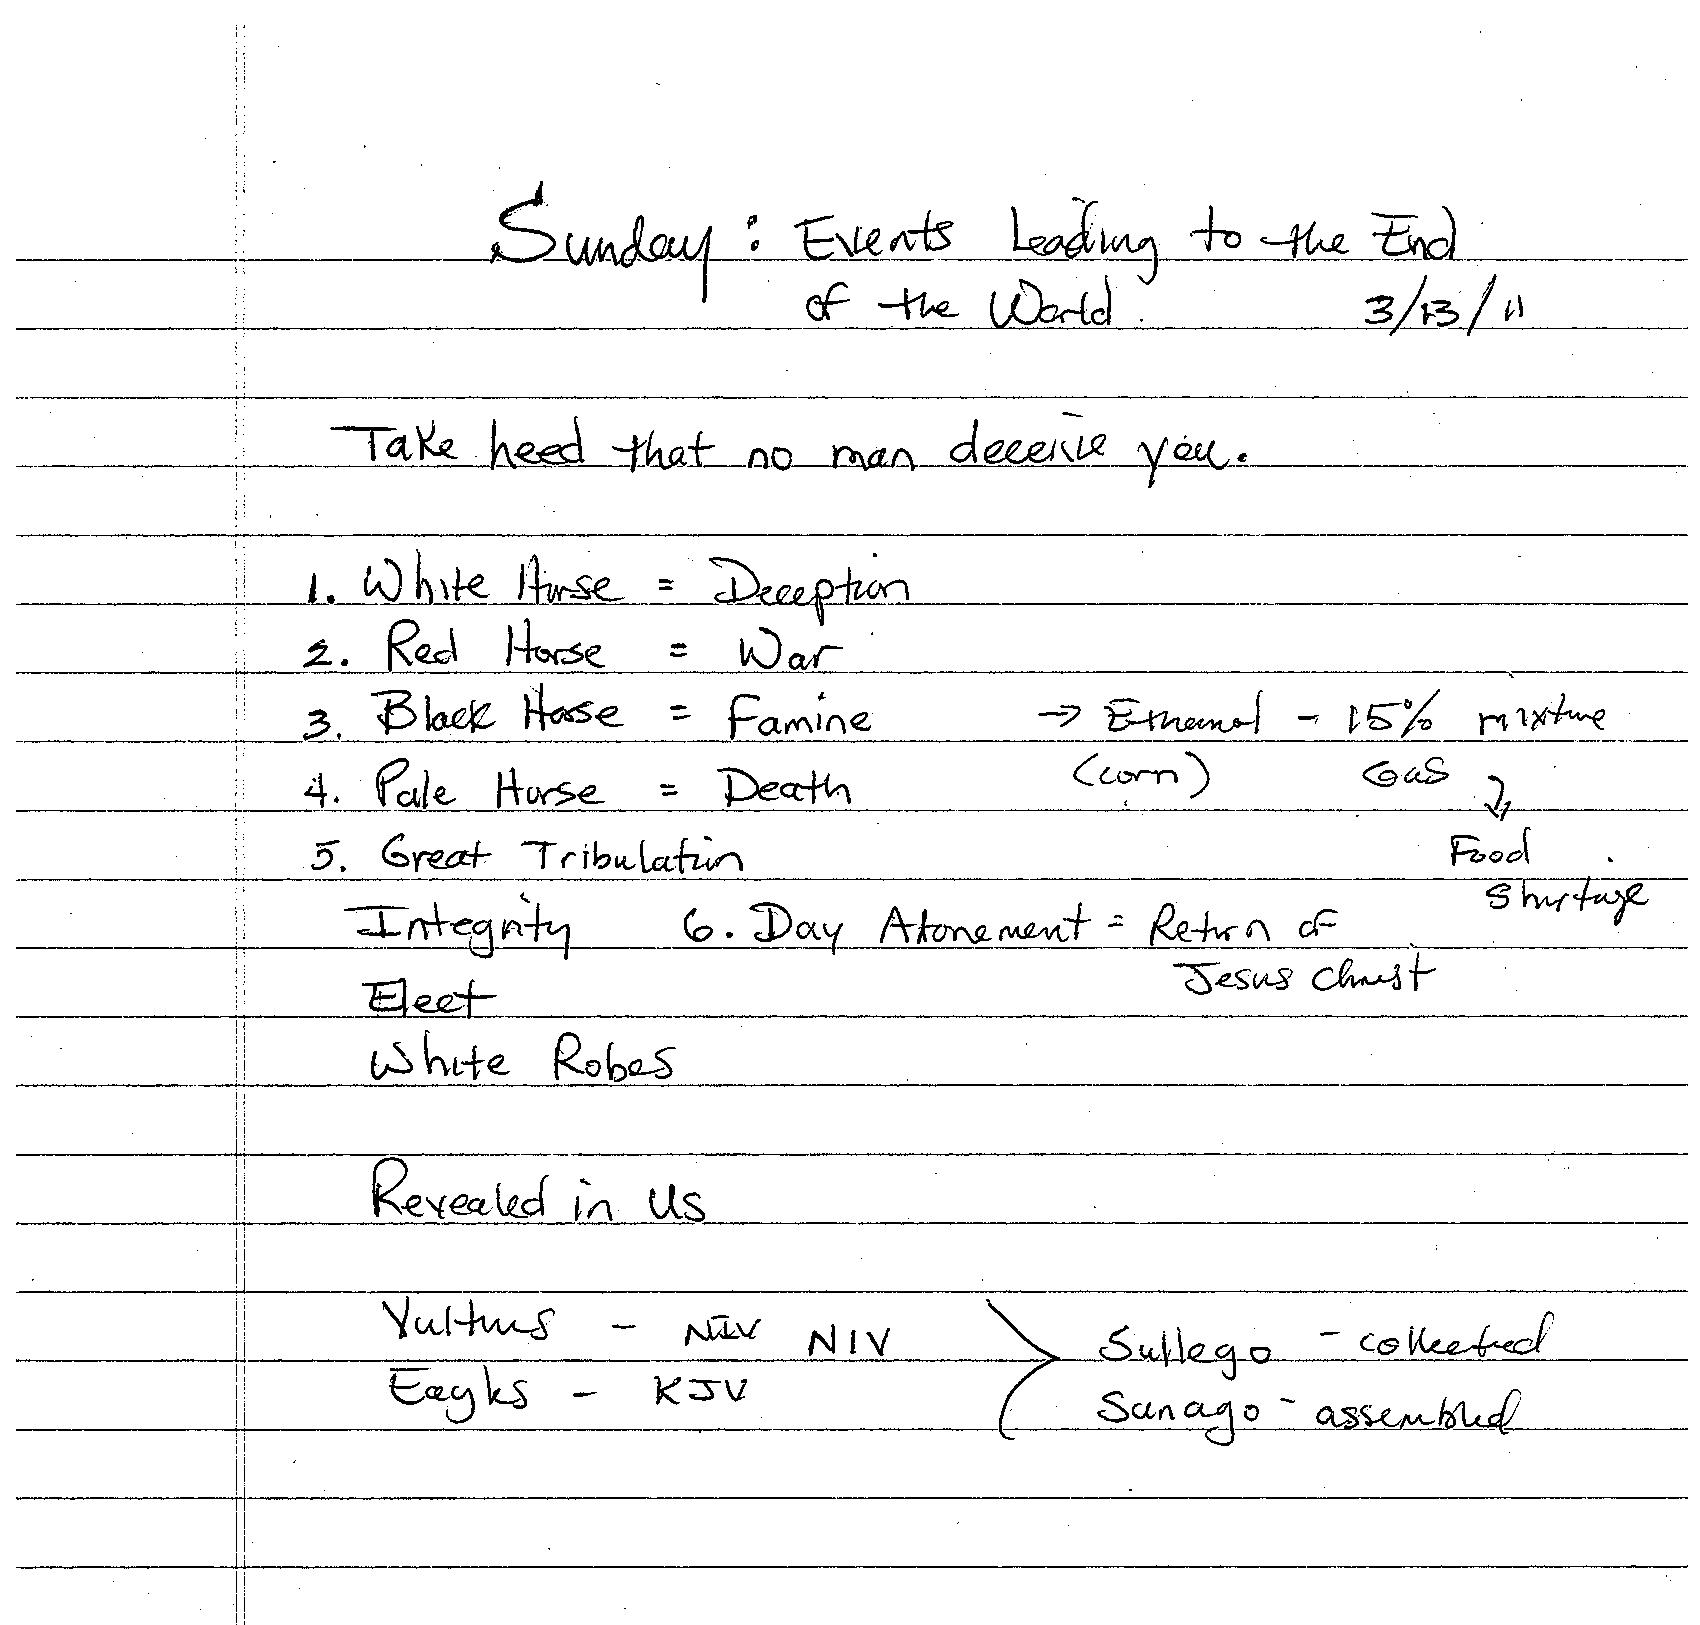 Sunday: Events Leading to the End
of the World. 3/13/11
Take heed that no man deceive you.
1. White Horse = Deception
2. Red Horse = War
3. Black Horse = Famine → Ethanol - 15% mixture
(corn) Gas
4. Pale Horse = Death
Food
shortage
5. Great Tribulation
Integrity 6. Day Atonement = Return of
Jesus Christ
Elect
White Robes
Revealed in Us
Vultures - NIV NIV
Eagles - KJV
Sullego - collected
Sunago - assembled